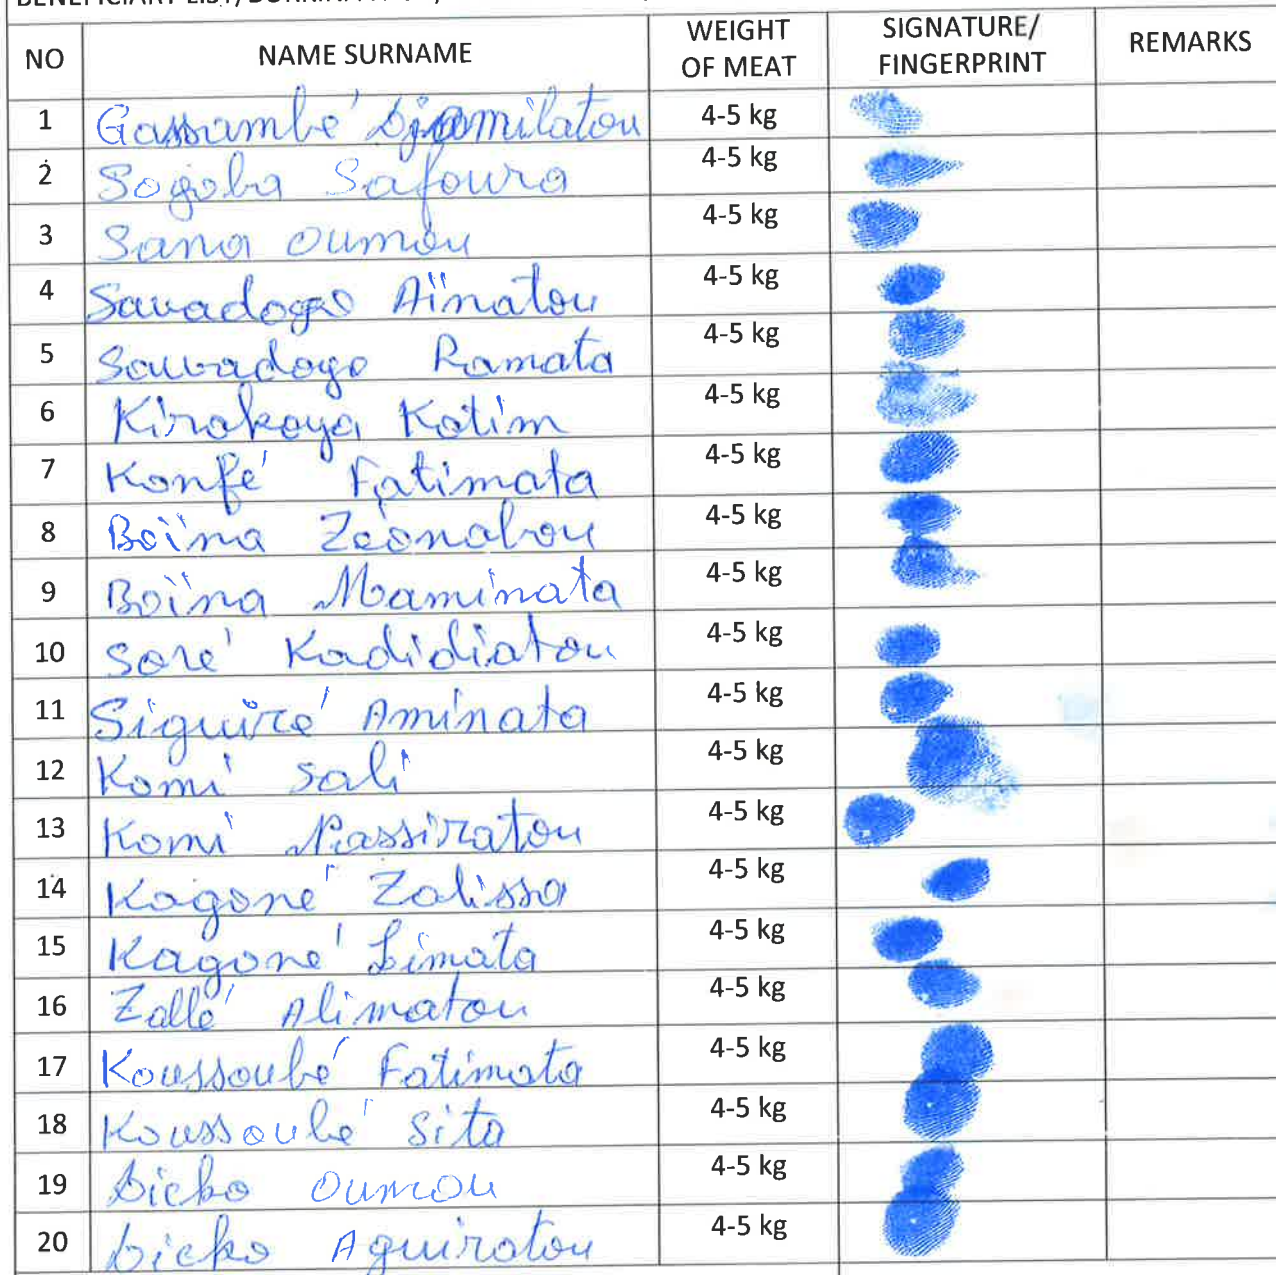 BENEFICIARY LIST/BURKINA FASO,
NO NAME SURNAME WEIGHT OF MEAT SIGNATURE/ FINGERPRINT REMARKS
1 Gassambé Djamilatou 4-5 kg
2 Sogoba Safoura 4-5 kg
3 Sana Oumou 4-5 kg
4 Savadogo Aïnatou 4-5 kg
5 Sawadogo Ramata 4-5 kg
6 Kirakoya Katim 4-5 kg
7 Konfé Fatimata 4-5 kg
8 Boïna Zeönabou 4-5 kg
9 Boïna Maminata 4-5 kg
10 Soré Kadidiatou 4-5 kg
11 Siguiré Aminata 4-5 kg
12 Komi Sali 4-5 kg
13 Komi Nassiratou 4-5 kg
14 Kagoné Zalissa 4-5 kg
15 Kagoné Limata 4-5 kg
16 Zallé Alimatou 4-5 kg
17 Koussoubé Fatimata 4-5 kg
18 Koussoubé Sita 4-5 kg
19 Dicko Oumou 4-5 kg
20 Dicko Aguiratou 4-5 kg